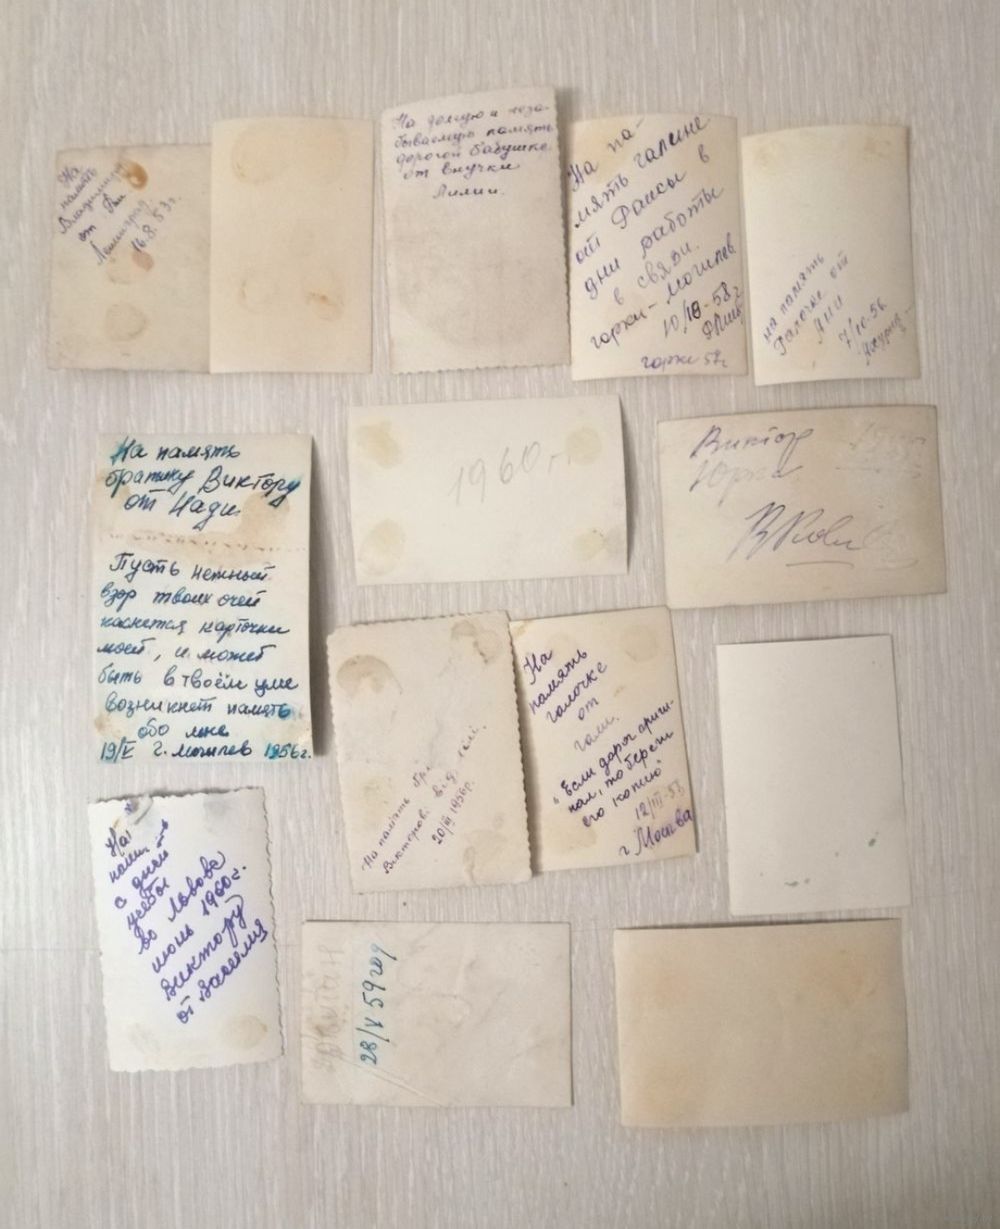 На
память
Владимиру
от
Ленинград
16.8.53г.
На долгую и неза-
бываемую память
дорогой бабушке
от внучки
Лилии.
На па-
мять Галине
от Раисы в
дни работы
в связи.
Горки-Могилев
10/10-58г
Горки 58г
на память
Галочке от
Ани
7/10-56
На память
братику Виктору
от Нади.
Пусть нежный
взор твоих очей
коснется карточки
моей, и может
быть в твоём уме
возникнет память
обо мне
19/V г. Могилев 1956г.
1960 г.
Виктор
Юрка
На
память
Галочке
от
Гали.
"Если дорог ориги-
нал, то береги
его копию"
12/III-53
г Москва
На память
Викторов. від
20/III 1956р.
На
с дней
учебы
во Львове
июнь 1960г.
Виктору
от Василия
28/V 59год